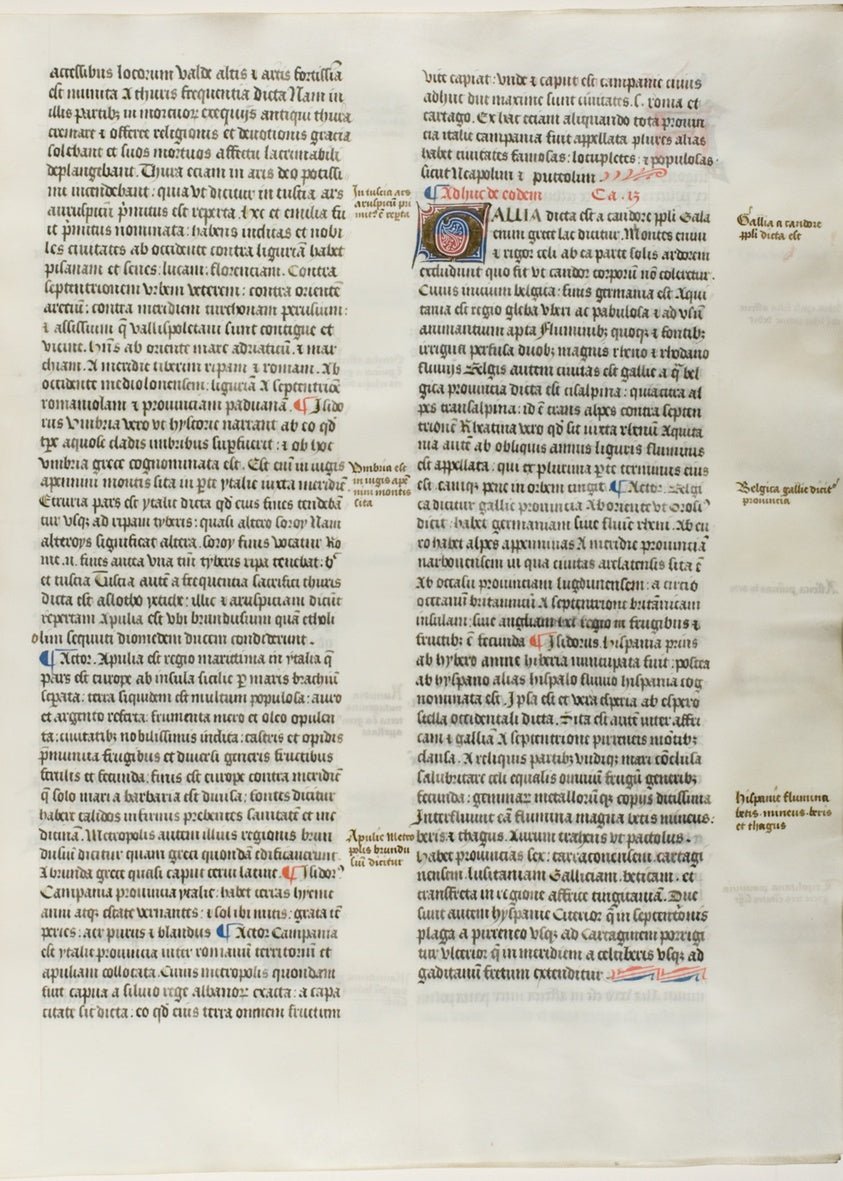 accessibus locorum valde altis ⁊ arcis fortissīa
est munita A thuris frequentia dicta Nam in
illis partibꝫ in mortuoꝝ exequijs antiqui thura
cremare ⁊ offerre religionis et deuotionis gracia
solebant et suos mortuos affectu lacrimabili
deplangebant. Thura eciam in aris deo potissi
mi incendebant: quia vt dicitur in tuscia ars
auruspicii p̄mitus est reperta. hec et emilia fu
it p̄mitus nominata: habens inclitas et nobi
les ciuitates ab occidente contra liguriā habet
pisanam et senes: lucam: florenciam. Contra
septentrionem vrbem veterem: contra orientē
aretiū: contra meridiem turchonam perusium:
⁊ assissium q̄ vallispoletani sunt contigue et
vicine. hn̄s ab oriente mare adriaticū. ⁊ mar
chiam. A meridie tiberim ripam ⁊ romam. Ab
occidente mediolonensem: liguriā A septentrice
romaniolam ⁊ prouinciam paduanā. ¶ Isido
rus Vmbria vero vt hystorie narrant ab eo qd̄
tp̄e aquose cladis imbribus sup̄fuerit: ⁊ ob hoc
vmbria grece cognominata est. Est em̄ in iugis
apennini montis sita in p̄te ytalie iuxta meridiē
Etruria pars est ytalie dicta qd̄ eius fines tendebā
tur vsqꝫ ad ripam tyberis: quasi altero soroy Nam
alteroys significat altera. soroy finis vocatur Ro
me .n. fines antea vna tm̄ tyberis ripa tenebat:
et tuscia Tuscia autē a frequentia sacrificii thuris
dicta est illic ⁊ aruspiciam dicūt
repertam Apulia est vbi brundusium quā etholi
olim sequuti diomedem ducem condiderunt.
¶ Actor. Apulia est regio marittima in ytalia q̄
pars est europe ab insula sicilie p maris brachiū
sep̄ata: terra siquidem est multum populosa: auro
et argento referta: frumento mero et oleo opulen
ta: ciuitatibꝫ nobilissimis inclita: castris et opidis
p̄munita frugibus et diuersi generis fructibus
fertilis et fecunda: finis est europe contra meridiē
q̄ solo mari a barbaria est diuisa: fontes dicitur
habere calidos infirmis prebentes sanitatē et me
dicinā. Metropolis autem illius regionis brun
dusiū dicitur quam greci quondā edificauerunt.
A brunda greca quasi caput cerui latine. ¶ Isidorꝰ
Campania prouincia ytalie: habet terras hyeme
anni atqꝫ estate vernantes: ⁊ sol ibi mitis: grata tē
peries: aer purus ⁊ blandus ¶ Actor Campania
est ytalie prouincia inter romanū territoriū et
apuliam collocata. Cuius metropolis quondam
fuit capua a siluio rege albanoꝝ exacta: a capa
citate sic dicta: eo qd̄ eius terra omnem fructum
In tuscia ars
aruspiciū pri
mitꝰ ē rep̄ta
Vmbria est
in iugis apē
nini montis
sita
Apulie Metro
polis brundu
siū dicitur
vite capiat: vnde ⁊ caput est campanie cuius
adhuc due maxime sunt ciuitates .s. roma et
cartago. Ex hac eciam aliquando tota prouin
cia italie campania fuit appellata plures alias
habet ciuitates famosas: locupletes: ⁊ populosas.
sicut Neapolim ⁊ puteolim
¶ Adhuc de eodem Ca. 13
GALLIA dicta est a candore ppli Gala
enim grece lac dicitur. Montes enim
⁊ rigor celi ab ea parte solis ardorem
excludunt quo fit vt candor corporū nō coloretur.
Cuius inicium belgica: finis germania est Aqui
tania est regio gleba vberi ac pabulosa ⁊ ad vsū
animantium apta Fluminibꝫ quoqꝫ ⁊ fontibꝫ
irrigua perfusa duobꝫ magnis rheno ⁊ rhodano
fluuijs Belgis autem ciuitas est gallie a q̄ bel
gica prouincia dicta est cisalpina: quia citra al
pes transalpina: id ē trans alpes contra septen
trionē Rheatina vero qd̄ sit iuxta rhenū Aquita
nia autē ab obliquis aquis ligeris fluminis
est appellata: qui ex plurima p̄te terminus eius
est. eamqꝫ pene in orbem cingit. ¶ Actor. Belgi
ca dicitur gallie prouincia Ab oriente vt Orosiꝰ
dicit: habet germaniam siue fluuiū rheni. Ab eu
ro habet alpes appeninas A meridie prouinciā
narbonensem in qua ciuitas arelatensis sita ē
Ab occasu prouinciam lugdunensem: a circio
occeanū britannicū A septentrione britānicam
insulam: siue angliam hec regio in frugibus ⁊
fructibꝫ ē fecunda ¶ Isidorus. hispania prius
ab hybero amne hiberia nuncupata fuit: postea
ab hyspano alias hispalo fluuio hispania cog
nominata est. Ipsa est et vera esperia ab espero
stella occidentali dicta. Sita est autē inter affri
cam ⁊ galliā A septentrione pireneis mōtibꝫ
clausa. A reliquis partibꝫ vndiqꝫ mari cōclusa
salubritate celi equalis omniū frugū generibꝫ
fecunda: gemmaꝝ metalloruqꝫ copijs ditissima
Interfluunt eā flumina magna betis mineus:
beris ⁊ thagus. Aurum trahens vt pactolus.
habet prouincias sex: tarraconensem. cartagi
nensem. lusitaniam Galliciam. beticam. et
transfreta in regione affrice tingitaniā. Due
sunt autem hyspanie Citerior q̄ in septentōnis
plaga a pireneo vsqꝫ ad Cartaginem porrigi
tur vlterior q̄ in meridiem a celtiberis vsqꝫ ad
gaditanū fretum extenditur
Gallia a candore
ppli dicta est
Belgica gallie dicitꝰ
prouincia
hispanie flumina
betis. mineus. beris
et thagus